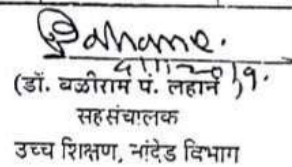 4/11/2019.
(डॉ. बळीराम पं. लहाने)
सहसंचालक
उच्च शिक्षण, नांदेड विभाग